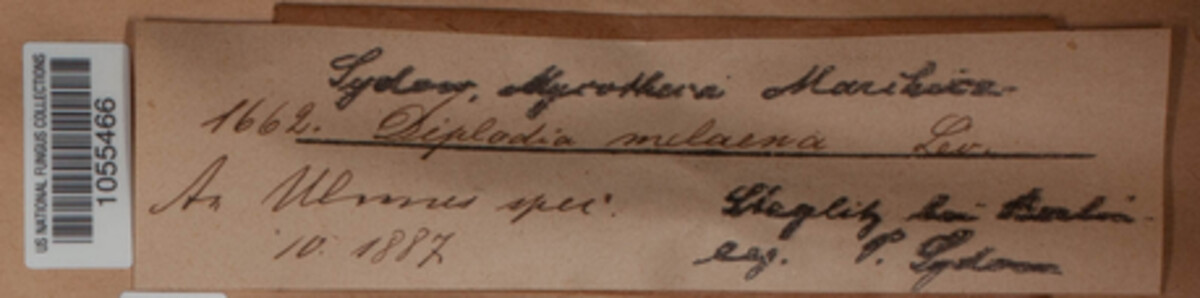 US NATIONAL FUNGUS COLLECTIONS
1055466
Sydow, Mycotheca Marchica
1662. Diplodia melaena Lév.
An Ulmus spec.
Steglitz bei Berlin
10. 1887
leg. P. Sydow